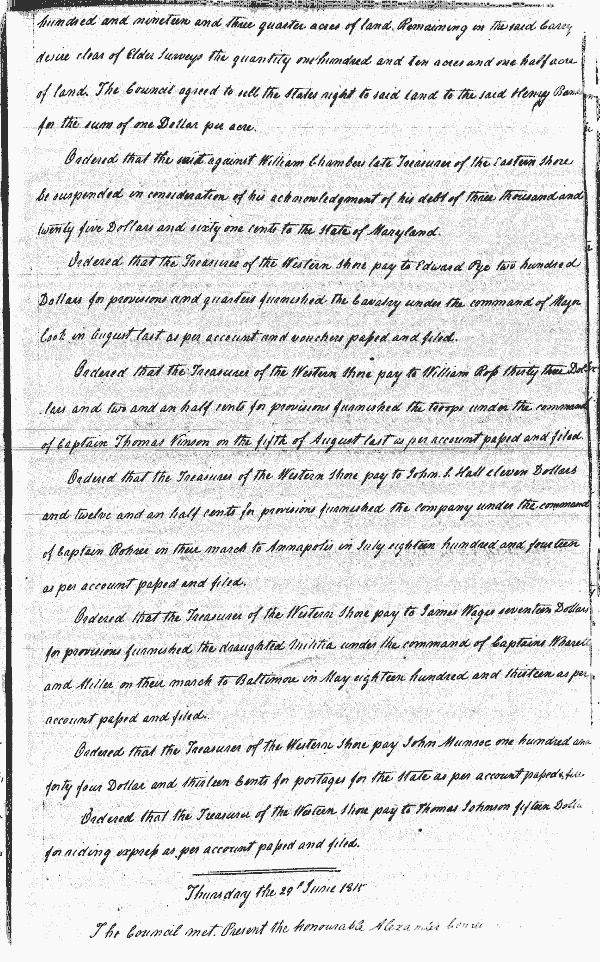 hundred and nineteen and three quarter acres of land, Remaining in the said
desire clear of Elder Surveys the quantity one hundred and ten acres and one half acre
of land. The Council agreed to sell the States right to said land to the said Henry
for the sum of one Dollar per acre.
Ordered that the against William Chambers late Treasurer of the Eastern Shore
be suspended in consideration of his acknowledgment of his debt of three thousand and
twenty five Dollars and sixty one cents to the State of Maryland.
Ordered that the Treasurer of the Western Shore pay to Edward Pye two hundred
Dollars for provisions and quarters furnished the Cavalry under the command of Major
Cook in August last as per account and vouchers paſsed and filed.
Ordered that the Treasurer of the Western Shore pay to William Roſs thirty three Dol
lars and two and an half cents for provisions furnished the troops under the command
of Captain Thomas Vinson on the fifth of August last as per account paſsed and filed.
Ordered that the Treasurer of the Western Shore pay to John. S. Hall eleven Dollars
and twelve and an half cents for provisions furnished the company under the command
of Captain Rohrer in their march to Annapolis in July eighteen hundred and fourteen
as per account paſsed and filed.
Ordered that the Treasurer of the Western Shore pay to James Wages seventeen Dollars
for provisions furnished the draughted Militia under the command of Captains
and Miller on their march to Baltimore in May eighteen hundred and thirteen as per
account paſsed and filed.
Ordered that the Treasurer of the Western Shore pay John Munroe one hundred and
forty four Dollar and thirteen Cents for postages for the State as per account paſsed & file
Ordered that the Treasurer of the Western Shore pay to Thomas Johnson fifteen Dolla
for riding expreſs as per account paſsed and filed.
Thursday the 29t June 1815
The Council met. Present the honourable Alexander